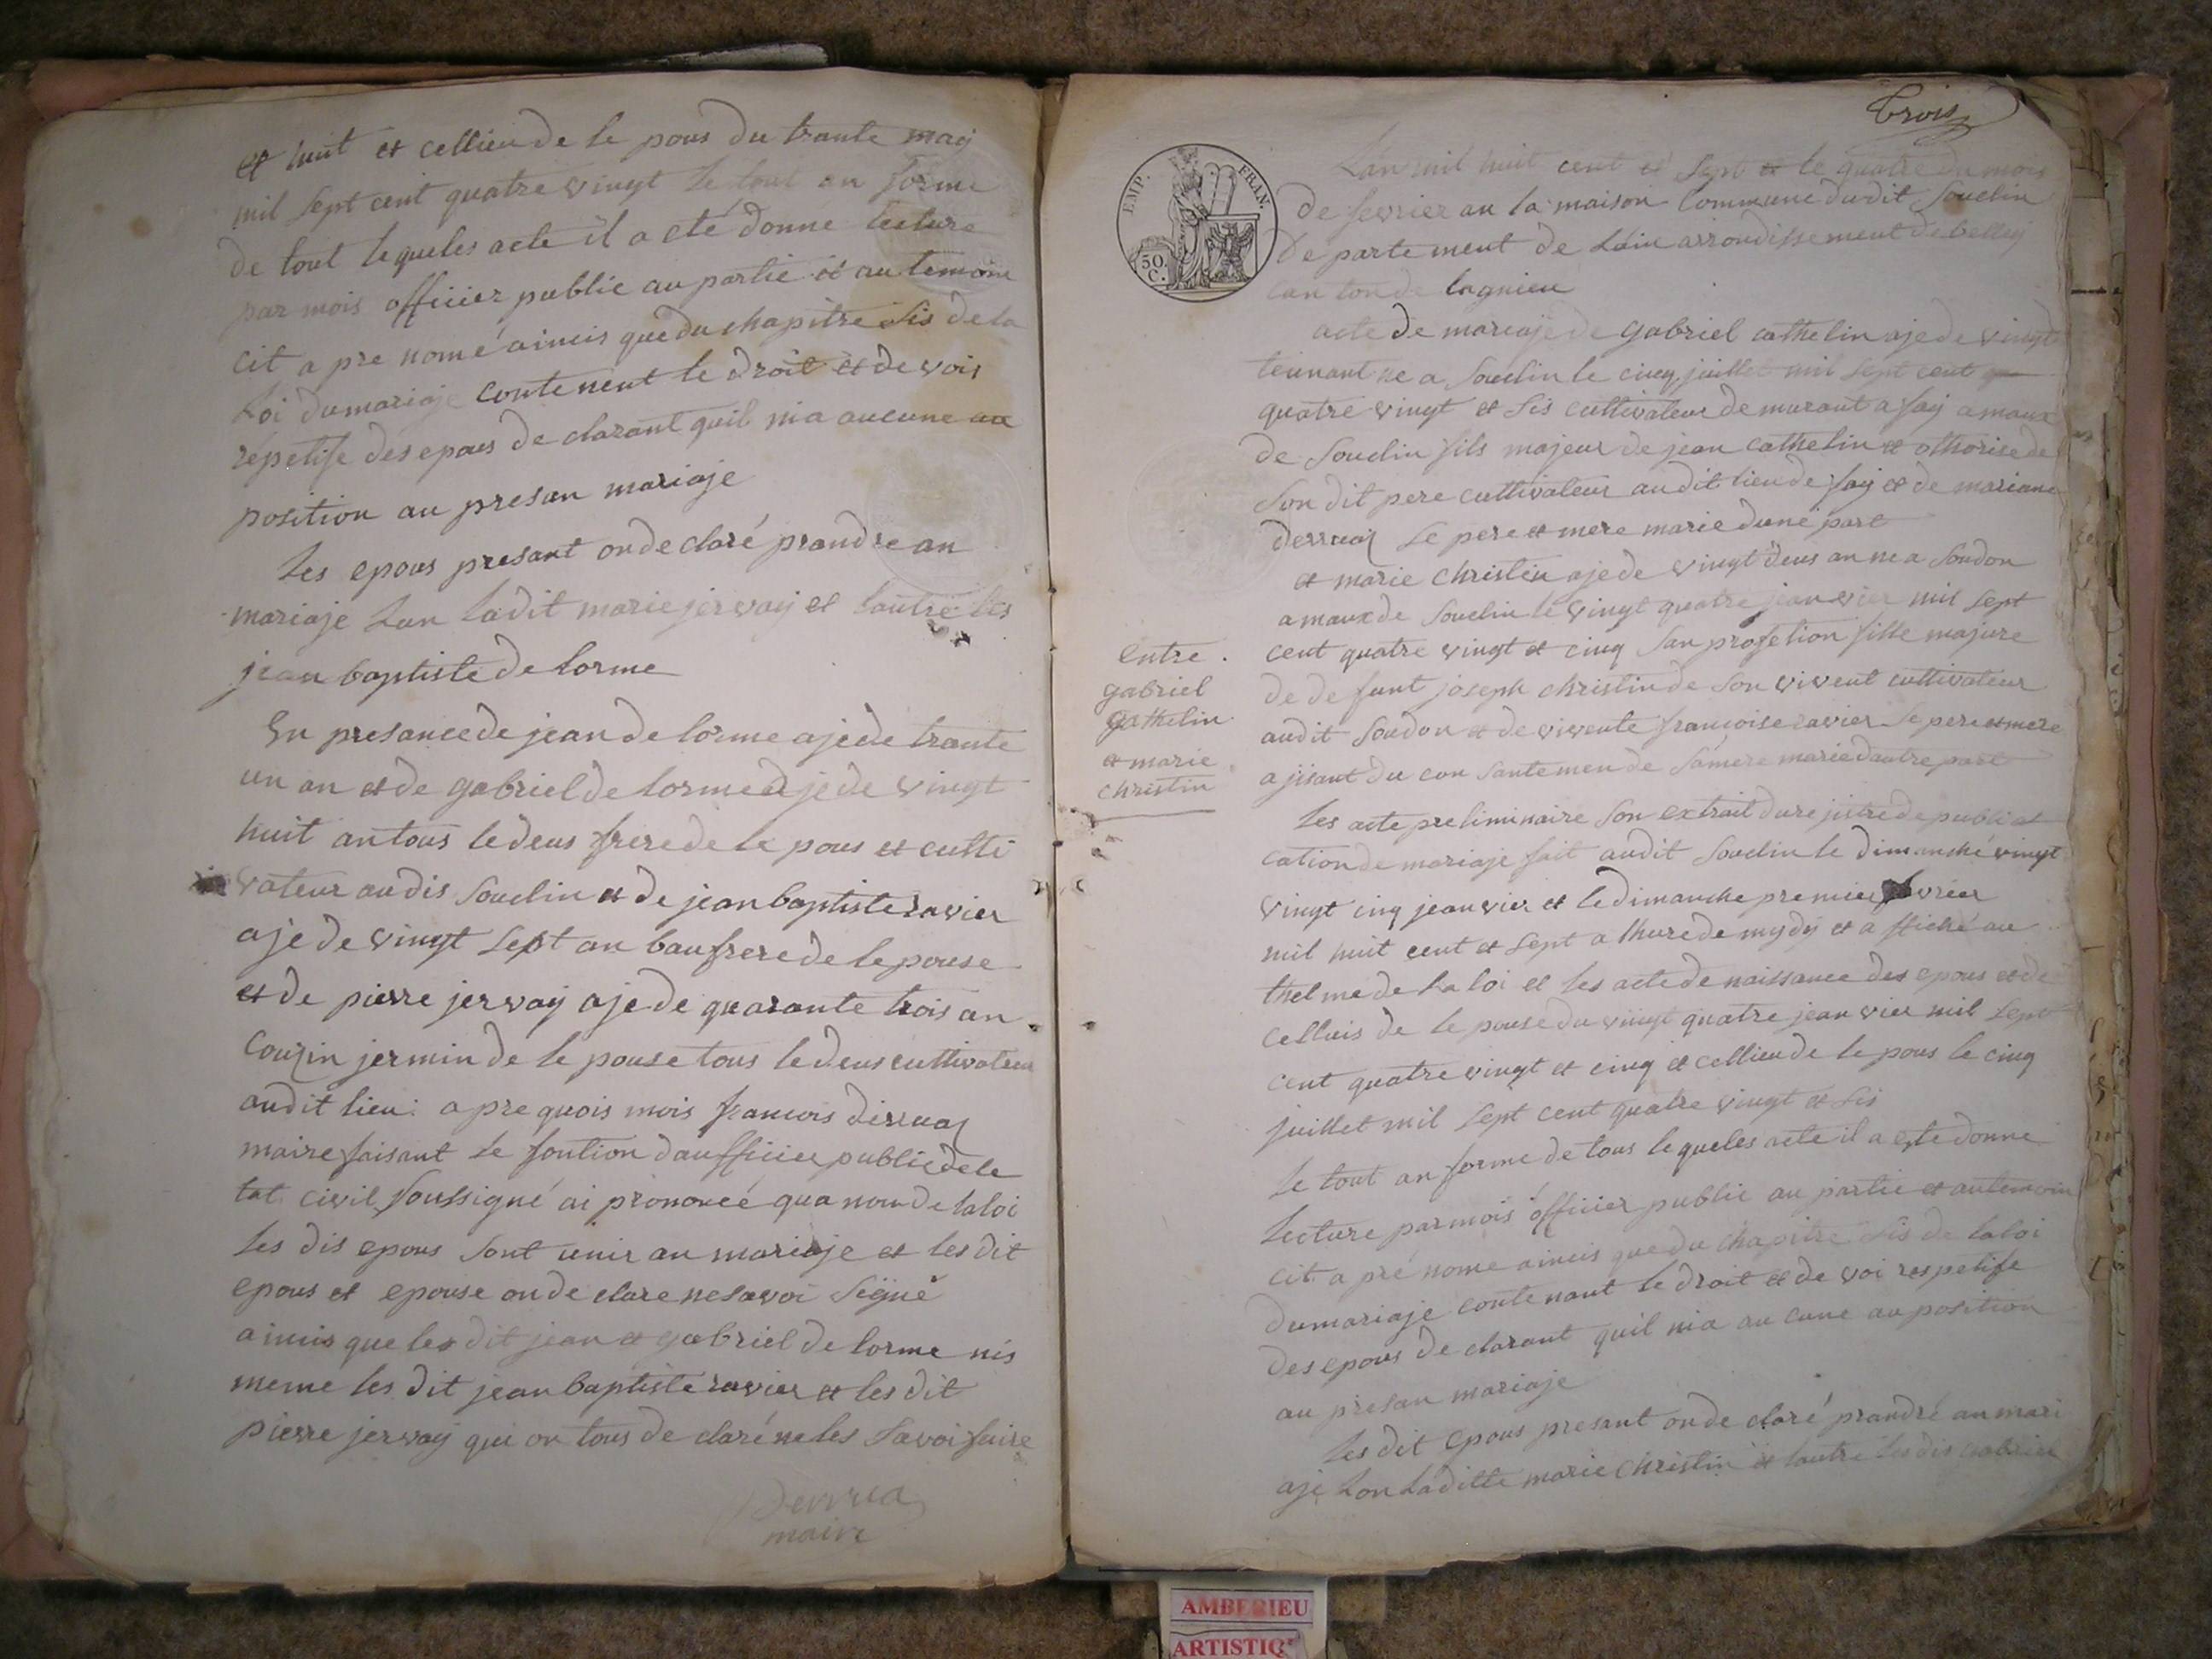 et huit et cellieu de le pous du trante may
mil sept cent quatre vingt le tout an forme
de tout lequeles acte il a eté donne lecture
par mois officier public au partie et au temoin
cit apre nomé aincis que du chapitre sis de la
Loi du mariaje contenent le droit et devois
respetife des epous declarant quil nia aucune au
position au presan mariaje
Les epous presant on declaré prandre an
mariaje Lun ladit marie jervaij et lautre les
jean baptiste delorme
En presance de jean delorme aje de trante
un an et de gabriel delorme aje de vingt
huit an tous le deus frere de le pous et culti
vateur au dis Souclin et de jean baptiste ravier
aje de vingt sept an baufrere de le pouse
et de pierre jervaij aje de quarante trois an
Couzin jermin de le pouse tous le deus cultivateur
audit lieu apre quois mois francois derruaz
maire faisant le fontion daufficier public de le
tat civil soussigné ai prononcé qua nom de la loi
les dis epous sont unir an mariaje et les dit
epous et epouse on declare ne savoi signé
aincis que les dit jean et gabriel delorme nis
meme les dit jean baptiste ravier et les dit
pierre jervaij qui on tous declaré ne les savoi faire
Derruaz
maire
trois
EMP. FRAN.
50.
C.
Lan mil huit cent et sept et le quatre du mois
de fevrier an la maison Commune dudit Souclin
Departement de Lain arrondissement de belley
canton de lagnieu
acte de mariaje de gabriel cathelin aje de vingt
tennant ne a Souclin le cinq juillet mil sept cent
quatre vingt et sis cultivateur demurant a faij amaux
de Souclin fils majeur de jean cathelin et othorise de
Son dit pere cultivateur audit lieu de faij et de mariane
derruaz le pere et mere marie dune part
et marie christin aje de vingt deus an ne a Soudon
amaux de Souclin le vingt quatre jeanvier mil sept
cent quatre vingt et cinq san profetion fille majure
de defunt joseph christin de son vivent cultivateur
audit Soudon et de vivente francoise ravier se pere et mere
ajisant du consantemen de sa mere marie dautre part
entre
gabriel
cathelin
et marie
christin
Les acte preliminaire son extrait du rejistre de publicat
cation de mariaje fait audit Souclin le dimanche vingt
vingt cinq jeanvier et le dimanche premier fevrier
mil huit cent et sept a lhure de mydy et affiché au
thelme de la loi et les acte de naissance des epous et de
celluis de le pouse du vingt quatre jeanvier mil sept
cent quatre vingt et cinq et cellieu de le pous le cinq
juillet mil sept cent quatre vingt et sis
le tout an forme de tous lequeles acte il a ete donne
lecture par mois officier public au partie et au temoin
cit apré nome aincis que du chapitre sis de la loi
du mariaje contenant le droit et devoi respetife
des epous declarant quil nia aucune auposition
au presan mariaje
Les dit epous presant on declaré prandré an mari
aje Lon Laditte marie christin et lautre les dis cabriel
AMBERIEU
ARTISTIQ